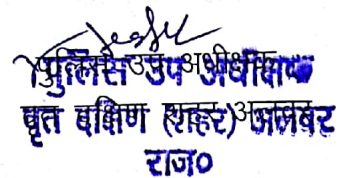 पुलिस उप अधीक्षक
वृत दक्षिण (शहर) अलवर
राज०